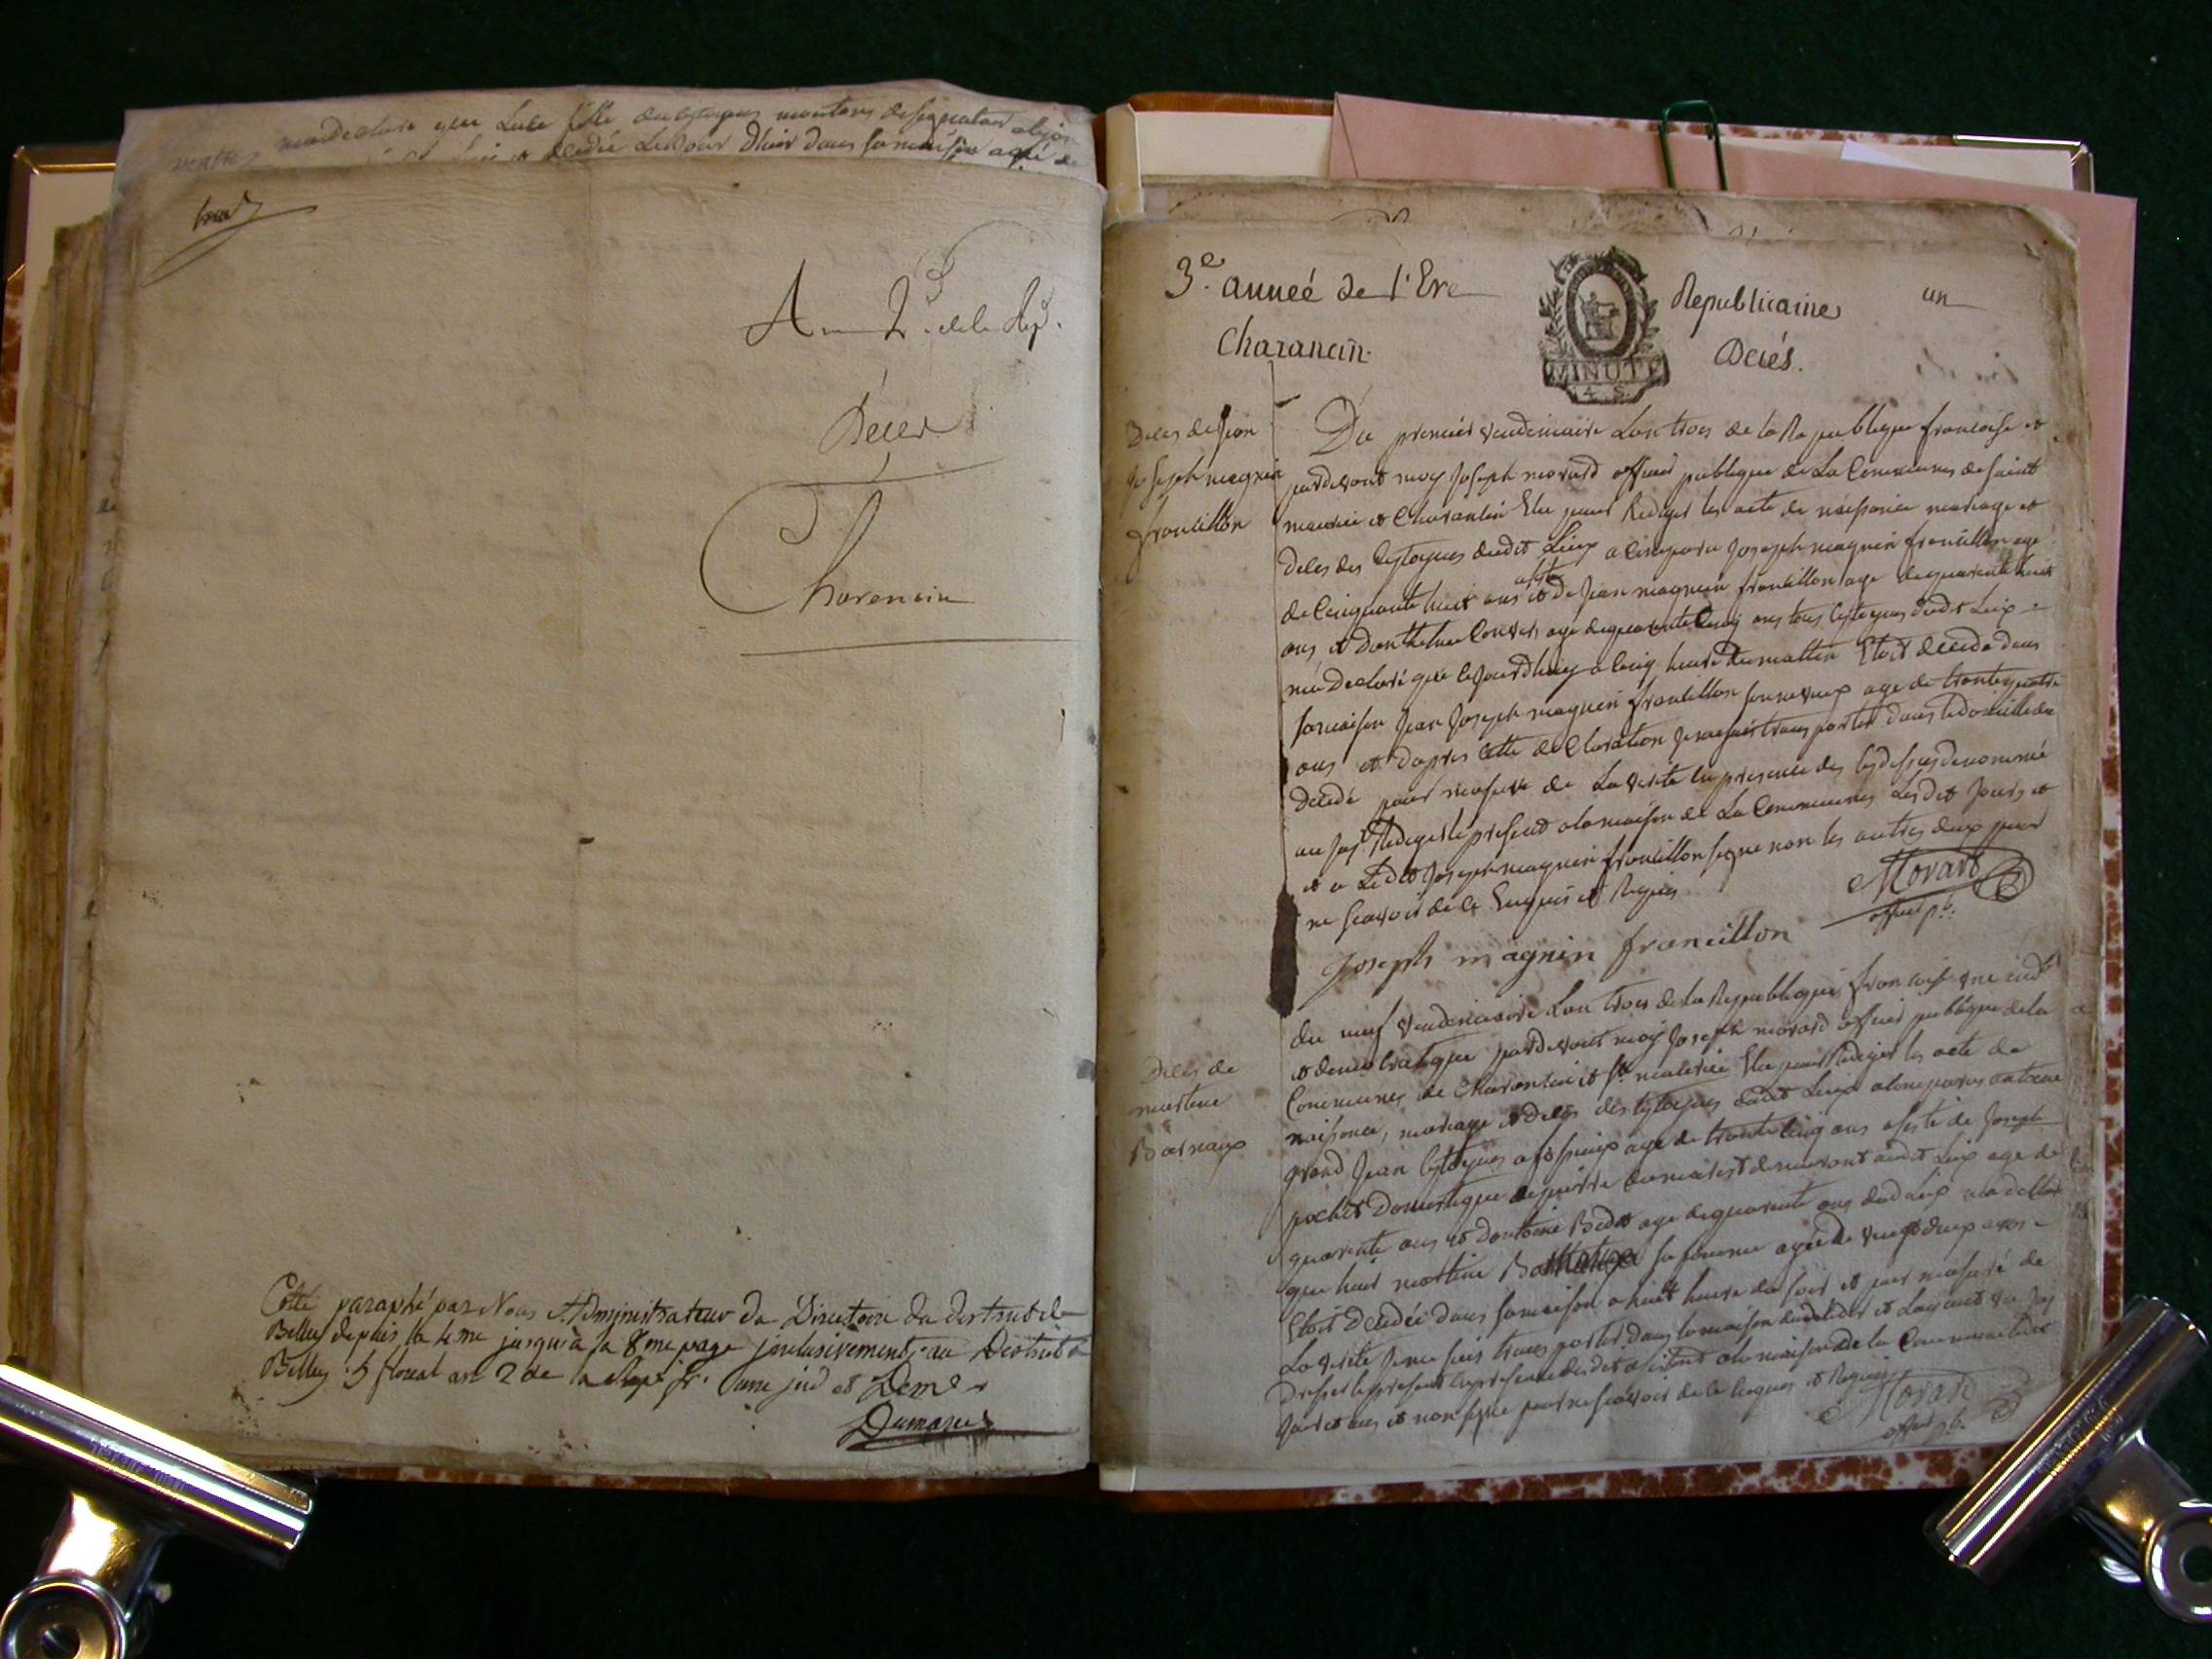 madeclare que
decedé Lejour dhier dans samaison agé de
An 2e. de la Rep.
Décés
Charencin
Cotté paraphé par Nous Administrateur du Directoire du district de
Belley depuis la 1ere jusqu'à la 8me page inclusivement, au District de
Belley 5 floreal an 2 de la Rep. fr. une ind et Dem
Dumarest
3e. anneé de l'Ere Republicaine un
Charancin. Decés.
Deces de Jean
Joseph magnin
francillon
Du premier vendemiaire Lan trois de la Republique francoise et
pardevant moy Joseph morard officier publique de La Communes de saint
maurice et Charantin Elu pour Rediger les acte de naissance mariage et
deces des Cytoyens dudit Lieux a Comparu Joseph magnin francillon age
de Cinquante huit ans asté de Jean magnin francillon age de quarante huit
ans et danthelme age de quarante Cinq ans tous Cytoyens dudit Lieux
ma Declaré que Cejourdhuy a Cinq heure du mattin Etoit decedé dans
samaison Jean Joseph magnin francillon age de trante quatre
ans et dapres Cette declaration Je me suis transporter dans le domicille du
decedé pour masuré de La verité En presence des Cydessus denommé
Rediger le present a la maison de La Communes Lesdit Jours et
et a Ledit Joseph magnin francillon signe non les autres deux pour
ne scavoir de Ce Enquis et Requis
Morard
officier p.
Joseph magnin francillon
Deces de
martine
du neuf vendemiaire Lan trois de la Republique francoise une indle
et democratique pardevant moy Joseph morard officier publique de la
Communes de Charantin et St. maurice Elu pour Rediger les acte de
naissance, mariage et deces des Cytoyens dudit Lieux a Comparus antoine
grand Jean Cytoyens age de trante Cinq ans asisté de Joseph
pochet Domestique de pierre dumarest demeurant audit Lieux age de
quarante ans et dantoine Bedat age de quarante ans dud Lieux ma declaré
que hier martine sa femme agée de vingt deux ans
Etoit decedée dans samaison a huit heure du soir et pour masuré de
La verité Je me suis transporter dans la maison dudit et Layant vu Jay
dresser le present En presence desdit asistant a la maison de la Commune Ledit
Jour et an et non signe pour ne scavoir de Ce Enquis et Requis
Morard
officier pb.
MINUTE
4 S.